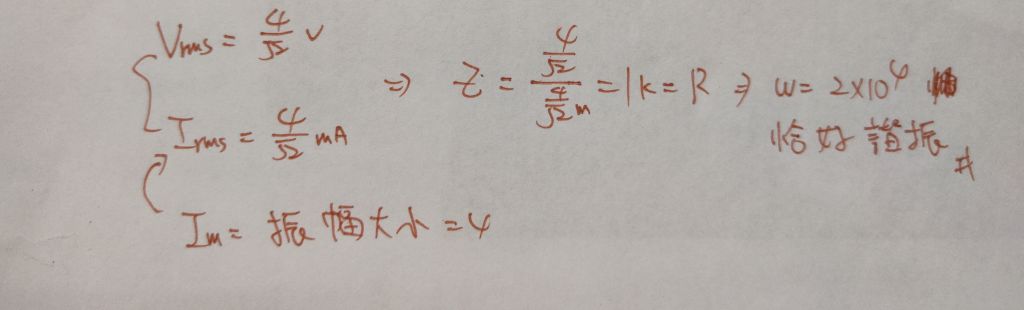 Vrms = 4/√2 V
Irms = 4/√2 mA
⇒ Z = (4/√2)/(4/√2 m) = 1k = R ⇒ ω = 2×10⁴
恰好諧振 #
Im = 振幅大小 = 4